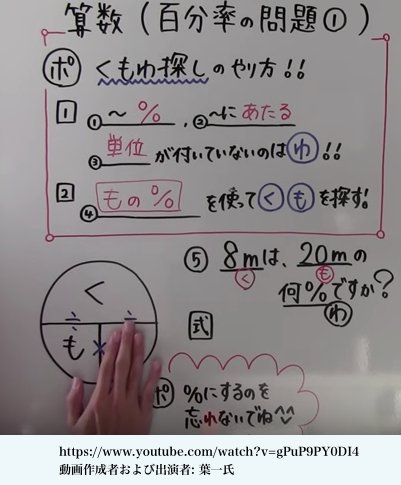 算数（百分率の問題①）
ポ くもわ探しのやり方!!
1 ①〜%、②〜にあたる
③単位が付いていないのはわ!!
2 ④もの%を使ってくもを探す!
⑤ 8mは、20mの
く も
何%ですか?
わ
く
÷ ÷
も×
式
ポ %にするのを
忘れないでね^^
https://www.youtube.com/watch?v=gPuP9PY0DI4
動画作成者および出演者: 葉一氏